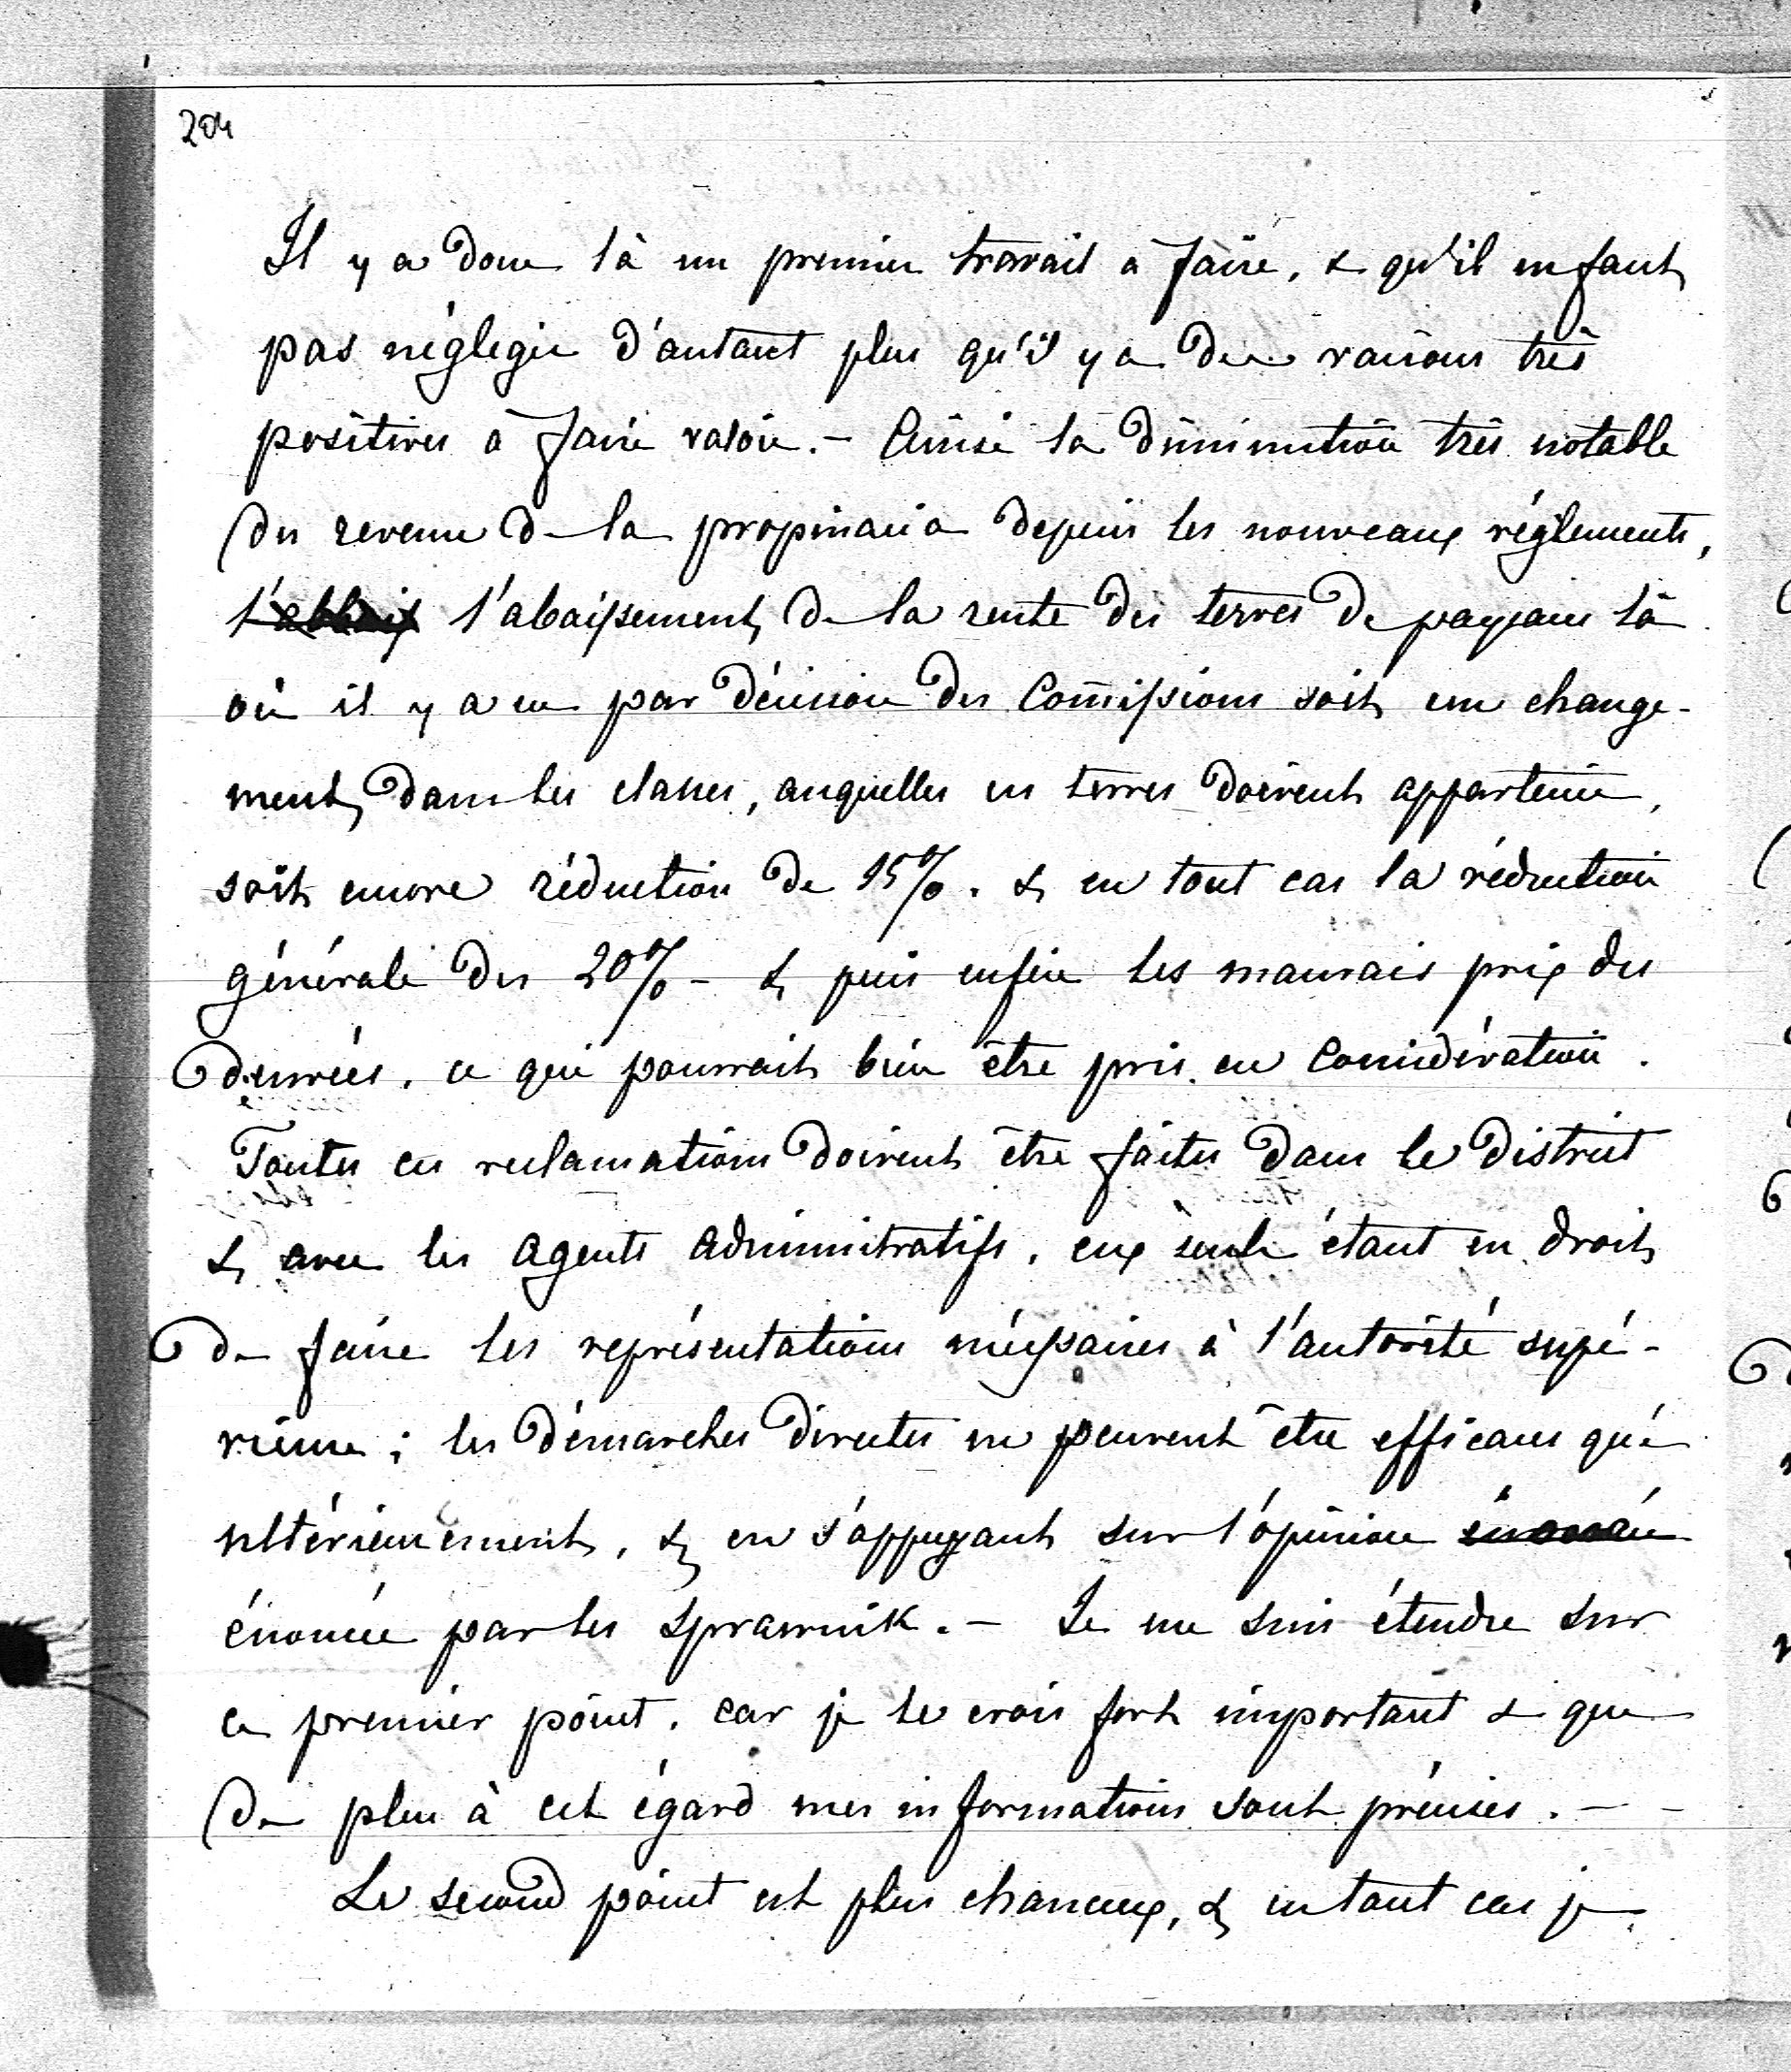 204
Il y a donc là un premier travail à faire, & qu'il ne faut
pas négliger d'autant plus qu'il y a des raisons très
positives à faire valoir. – Ainsi la diminution très notable
du revenu de la propinacia depuis les nouveaux réglements,
l'abbais l'abaissement de la rente des terres de paysans là
où il y a eu par décision des Comissions soit un change-
ment dans les classes, auquelles ces terres doivent appartenir,
soit encore réduction de 15%. & en tout cas la réduction
générale des 20% – & puis enfin les mauvais prix des
denrées, ce qui pourrait bien être pris en considération.
Toutes ces reclamations doivent être faites dans le District
& avec les agents administratifs, eux seuls étant en droit
de faire les représentations nécessaires à l'autorité supé-
rieure ; les démarches directes ne peuvent être efficaces qu'
ultérieurement, & en s'appuyant sur l'opinion énoncée
énoncée par les sprawnik. – Je me suis étendre sur
ce premier point, car je le crois fort important & que
de plus à cet égard mes informations sont précises. – –
Le second point est plus chanceux, & en tout cas je